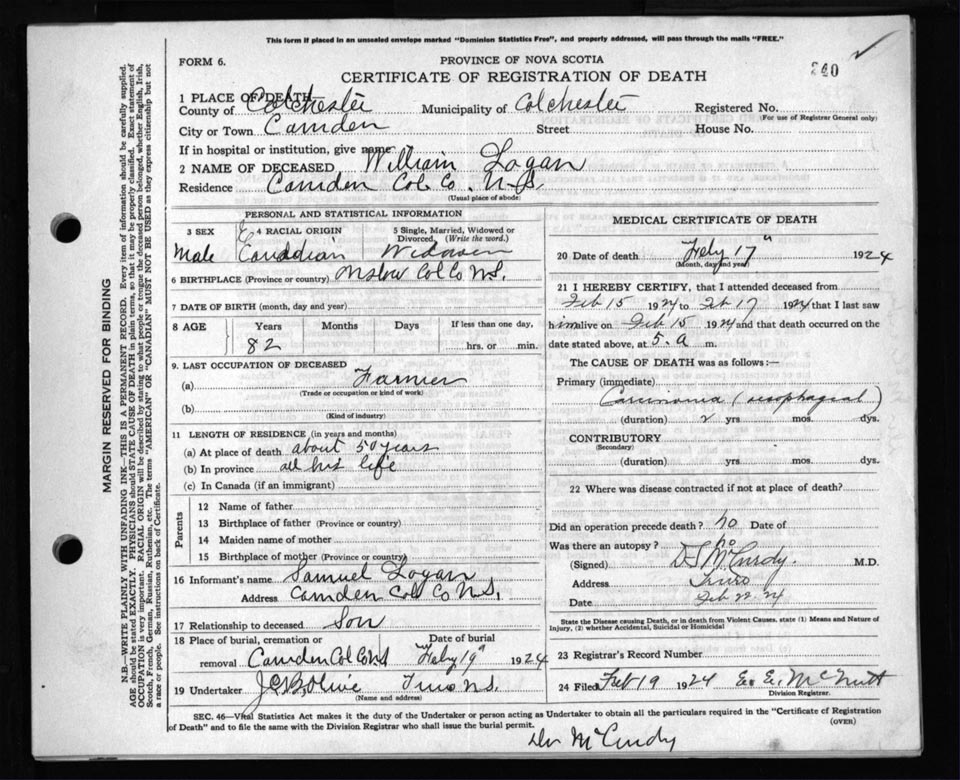 This form if placed in an unsealed envelope marked "Dominion Statistics Free", and properly addressed, will pass through the mails "FREE."
FORM 6.
PROVINCE OF NOVA SCOTIA
240
CERTIFICATE OF REGISTRATION OF DEATH
1 PLACE OF DEATH—
County of Colchester Municipality of Colchester Registered No.
(For use of Registrar General only)
City or Town Camden Street House No.
If in hospital or institution, give name
2 NAME OF DECEASED William Logan
Residence Camden Col. Co. N.S.
(Usual place of abode)
PERSONAL AND STATISTICAL INFORMATION
3 SEX 4 RACIAL ORIGIN 5 Single, Married, Widowed or Divorced, (Write the word.)
Male Canadian Widower
6 BIRTHPLACE (Province or country) Onslow Col Co N.S.
7 DATE OF BIRTH (month, day and year)
8 AGE Years Months Days If less than one day,
82 hrs. or min.
9. LAST OCCUPATION OF DECEASED
(a) Farmer
(Trade or occupation or kind of work)
(b)
(Kind of industry)
11 LENGTH OF RESIDENCE (in years and months)
(a) At place of death about 50 years
(b) In province all his life
(c) In Canada (if an immigrant)
Parents
12 Name of father
13 Birthplace of father (Province or country)
14 Maiden name of mother
15 Birthplace of mother (Province or country)
16 Informant's name Samuel Logan
Address Camden Col Co N.S.
17 Relationship to deceased Son
18 Place of burial, cremation or Date of burial
removal Camden Col Co N.S. Feby 19" 1924
19 Undertaker Truro N.S.
(Name and address)
MEDICAL CERTIFICATE OF DEATH
20 Date of death Feby 17" 1924
(Month, day and year)
21 I HEREBY CERTIFY, that I attended deceased from
Feb 15 1924 to Feb 17 1924 that I last saw
him alive on Feb 15 1924 and that death occurred on
the date stated above, at 5. a m.
The CAUSE OF DEATH was as follows:—
Primary (immediate)
Carcinoma (oesophageal)
(duration) 2 yrs mos. dys.
CONTRIBUTORY
(Secondary)
(duration) yrs mos. dys.
22 Where was disease contracted if not at place of death?
Did an operation precede death? no Date of
Was there an autopsy? no
(Signed) D S McCurdy. M.D.
Address Truro
Date Feb 22 24
State the Disease causing Death, or in death from Violent Causes, state (1) Means and Nature of Injury, (2) whether Accidental, Suicidal or Homicidal
23 Registrar's Record Number
24 Filed Feb 19 1924 E. E. McNutt
Division Registrar.
SEC. 46—Vital Statistics Act makes it the duty of the Undertaker or person acting as Undertaker to obtain all the particulars required in the "Certificate of Registration
of Death" and to file the same with the Division Registrar who shall issue the burial permit.
(OVER)
Dr McCurdy
MARGIN RESERVED FOR BINDING
N.B.—WRITE PLAINLY WITH UNFADING INK—THIS IS A PERMANENT RECORD. Every item of information should be carefully supplied.
AGE should be stated EXACTLY. PHYSICIANS should STATE CAUSE OF DEATH in plain terms, so that it may be properly classified. Exact statement of
OCCUPATION is very important. RACIAL ORIGIN will be described by stating to what people or tongue the deceased person belonged, whether English, Irish,
Scotch, French, German, Russian, Ruthenian, etc. The terms "AMERICAN" OR "CANADIAN" MUST NOT BE USED as they express citizenship but not
a race or people. See instructions on back of Certificate.